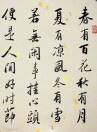 春有百花秋有月
夏有凉風冬有雪
若無閑事挂心頭
便是人间好时節